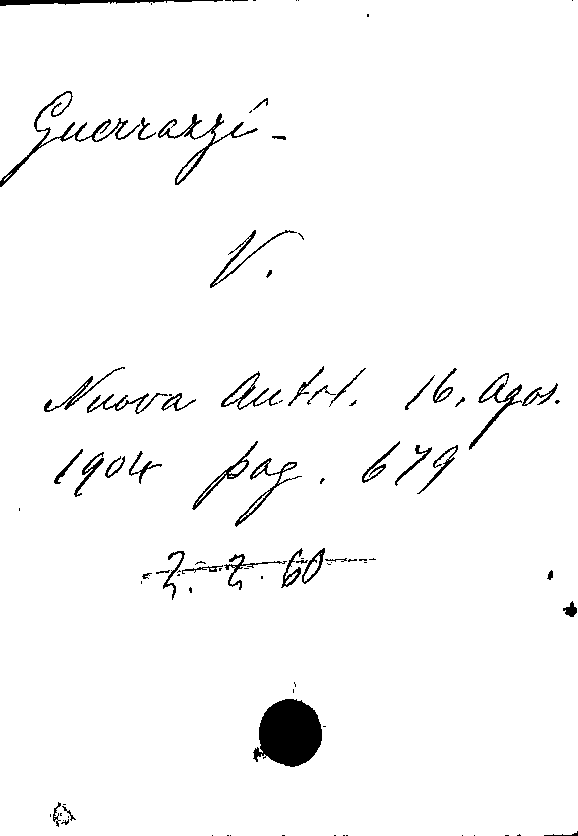 Guerrazzi -
V.
Nuova Antol. 16. Agos.
1904 pag. 679
Z. Z. 60